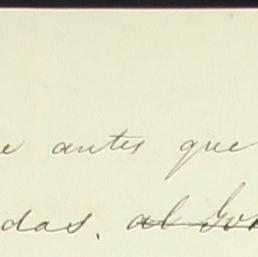 e antes que
das. al Go